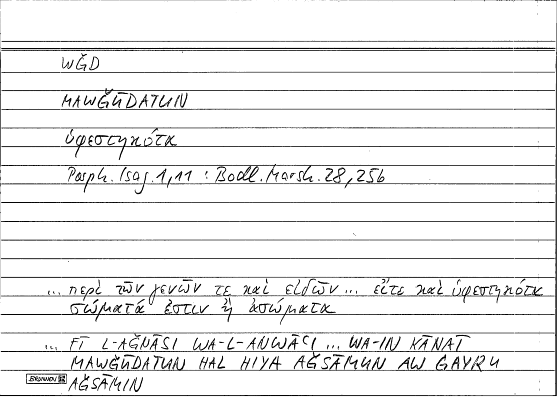 WǦD
MAWǦŪDATUN
ὑφεστηκότα
Porph. Isag. 1,11 : Bodl. Marsh. 28, 25b
... περὶ τῶν γενῶν τε καὶ εἰδῶν ... εἴτε καὶ ὑφεστηκότα
σώματά ἐστιν ἢ ἀσώματα
... FĪ L-AǦNĀSI WA-L-ANWĀʿI ... WA-IN KĀNAT
MAWǦŪDATUN HAL HIYA AǦSĀMUN AW ĠAYRU
BRUNNEN AǦSĀMIN